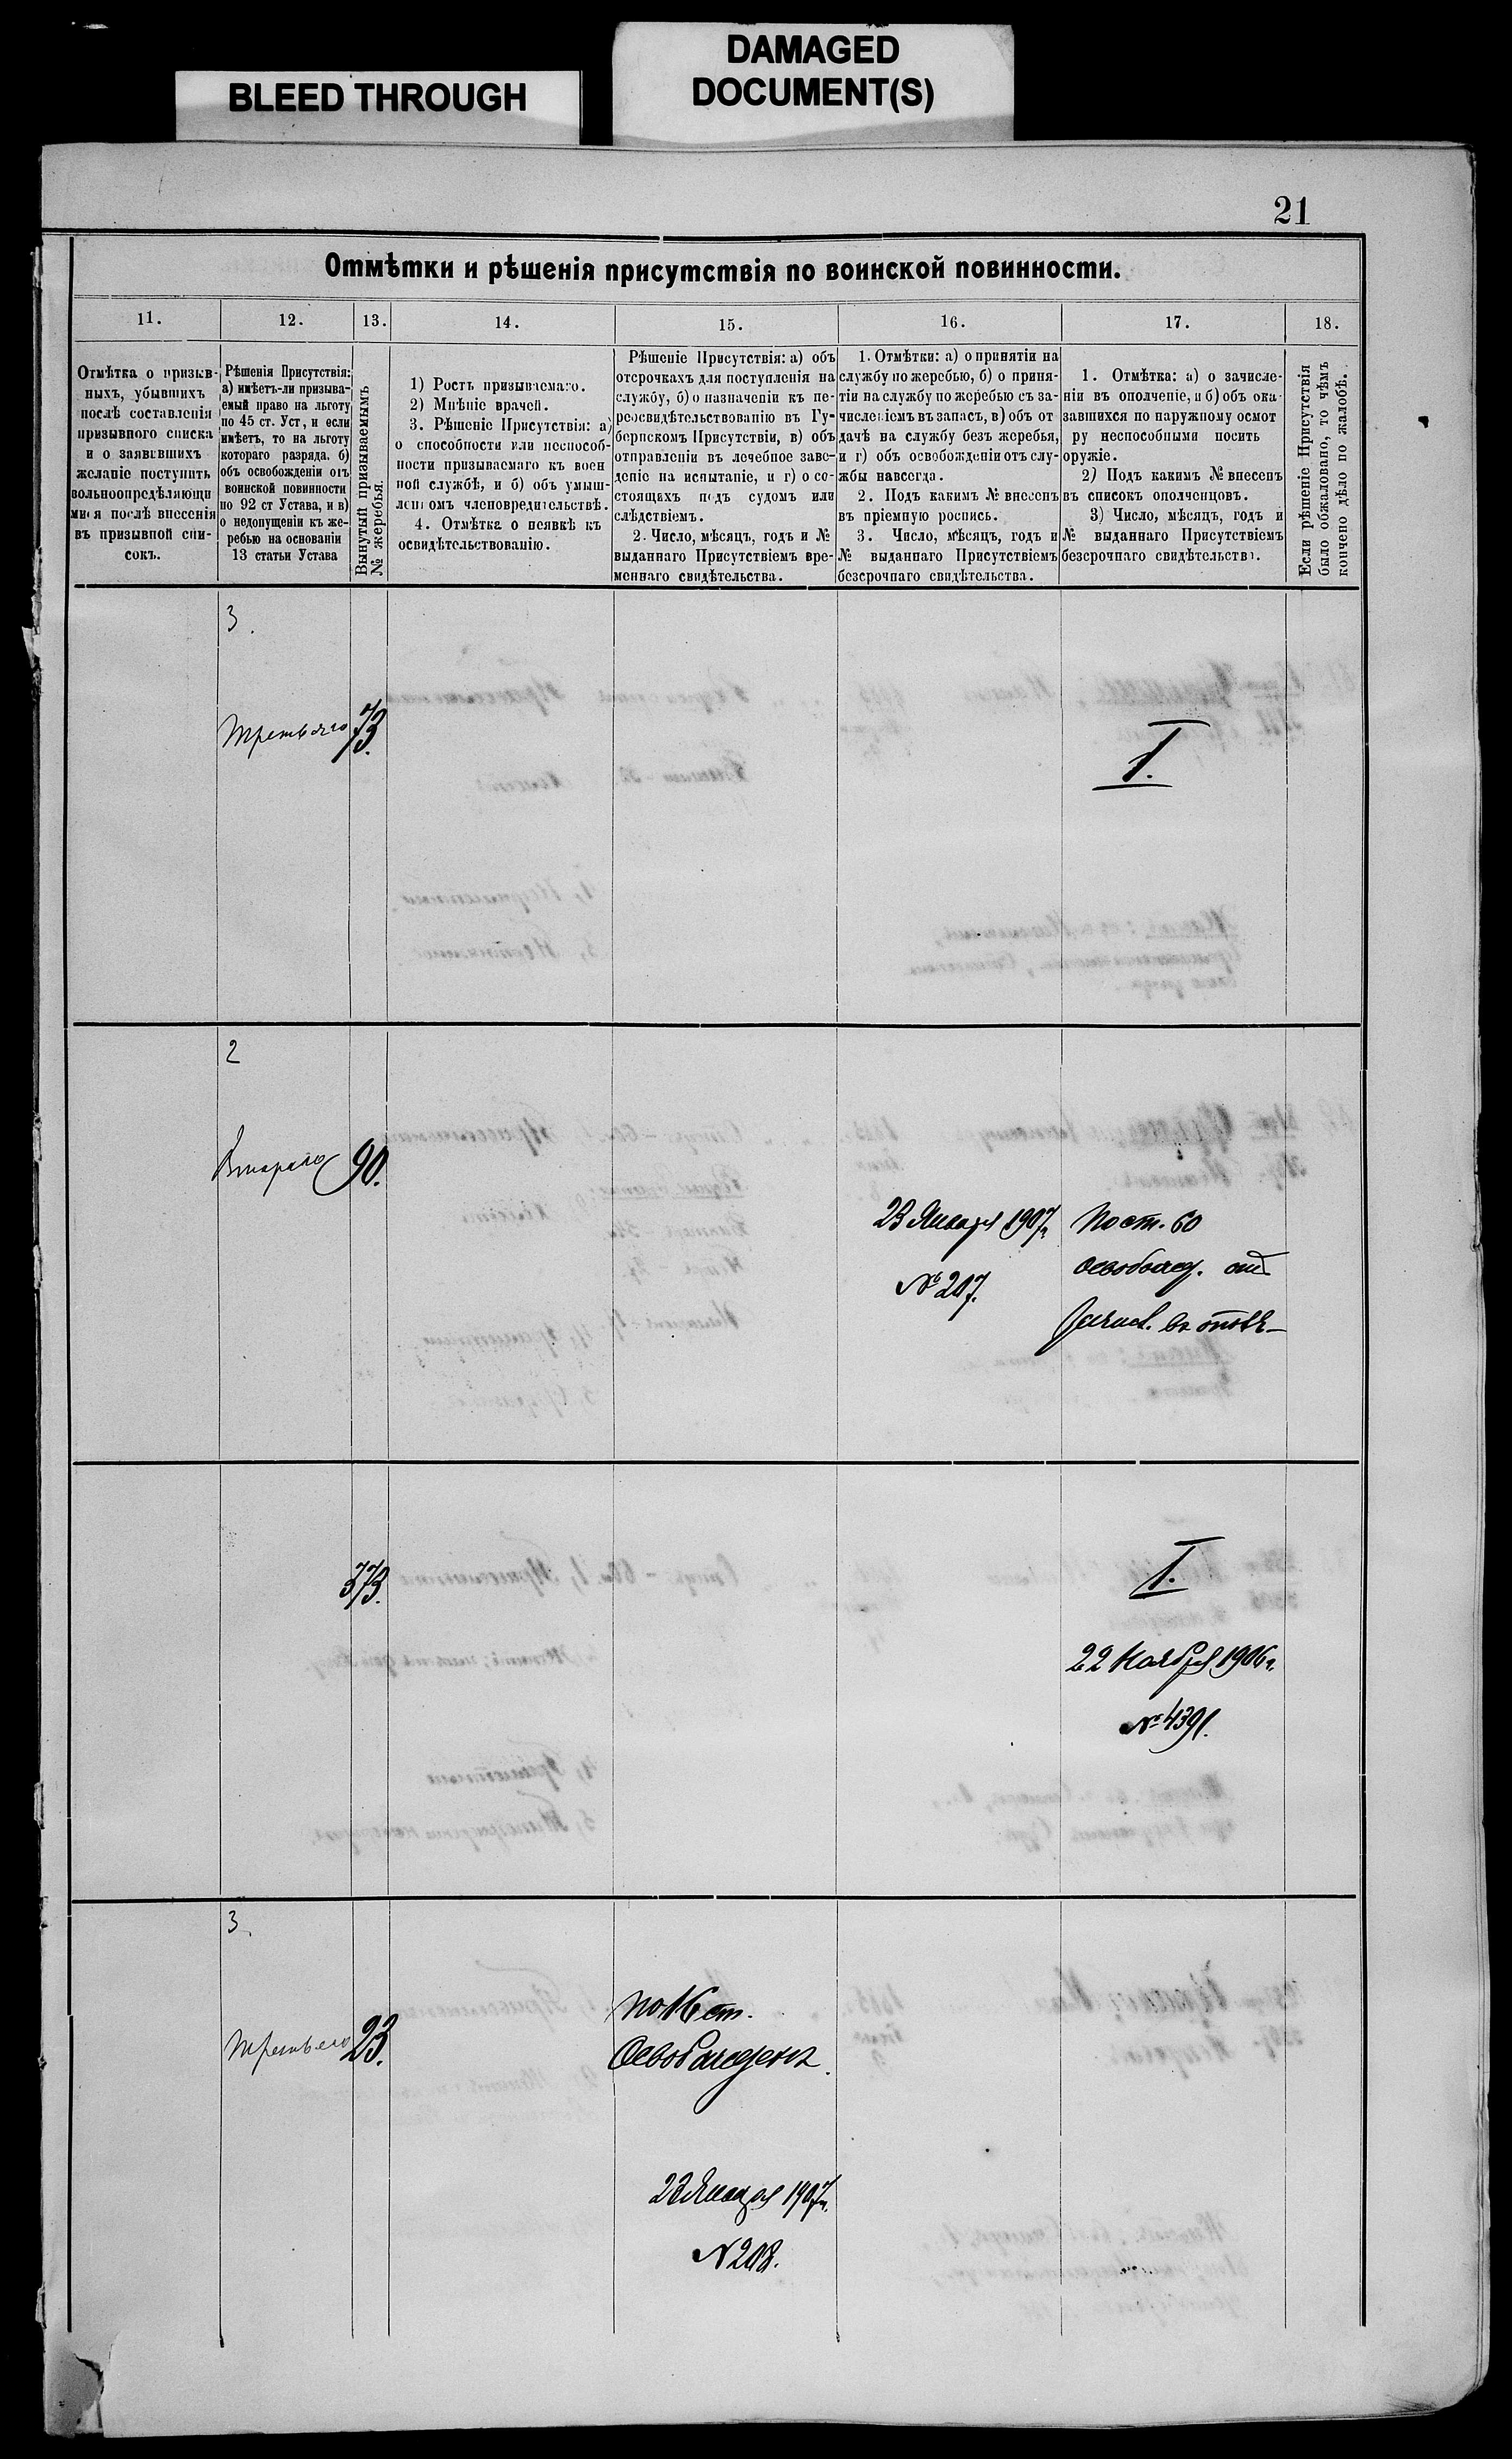 BLEED THROUGH
DAMAGED
DOCUMENT(S)
21
Отмѣтки и рѣшенія присутствія по воинской повинности.
11.
12.
13.
14.
15.
16.
17.
18.
Отмѣтка о призыв-
ныхъ, убывшихъ
послѣ составленія
призывного списка
и о заявившихъ
желаніе поступить
вольноопредѣляющи
мися послѣ внесенія
въ призывной спи-
сокъ.
Рѣшенія Присутствія:
а) имѣетъ-ли призыва-
емый право на льготу
по 45 ст. Уст, и если
имѣетъ, то на льготу
котораго разряда. б)
объ освобожденіи отъ
воинской повинности
по 92 ст Устава, и в)
о недопущеніи къ же-
ребью на основаніи
13 статьи Устава
Вынутый призываемымъ
№ жеребья.
1) Ростъ призываемаго.
2) Мнѣніе врачей.
3. Рѣшеніе Присутствія: а)
о способности или неспособ-
ности призываемаго къ воен
ной службѣ, и б) объ умыш-
ленномъ членовредительствѣ.
4. Отмѣтка о неявкѣ къ
освидѣтельствованію.
Рѣшеніе Присутствія: а) объ
отсрочкахъ для поступленія на
службу, б) о назначеніи къ пе-
реосвидѣтельствованію въ Гу-
бернскомъ Присутствіи, в) объ
отправленіи въ лечебное заве-
деніе на испытаніе, и г) о со-
стоящихъ подъ судомъ или
слѣдствіемъ.
2. Число, мѣсяцъ, годъ и №
выданнаго Присутствіемъ вре-
меннаго свидѣтельства.
1. Отмѣтки: а) о принятіи на
службу по жеребью, б) о приня-
тіи на службу по жеребью съ за-
численіемъ въ запасъ, в) объ от
дачѣ на службу безъ жеребья,
и г) объ освобожденіи отъ слу-
жбы навсегда.
2. Подъ какимъ № внесенъ
въ пріемную роспись.
3. Число, мѣсяцъ, годъ и
№ выданнаго Присутствіемъ
безсрочнаго свидѣтельства.
1. Отмѣтка: а) о зачисле-
ніи въ ополченіе, и б) объ ока-
завшихся по наружному осмот
ру неспособными носить
оружіе.
2) Подъ какимъ № внесенъ
въ списокъ ополченцовъ.
3) Число, мѣсяцъ, годъ и
№ выданнаго Присутствіемъ
безсрочнаго свидѣтельства.
Если рѣшеніе Присутствія
было обжаловано, то чѣмъ
кончено дѣло по жалобѣ.
3.
Третьяго
73.
I.
2
Втораго
90.
23 Января 1907 г.
№ 207.
По ст. 60
освобожд. отъ
зачисл. въ
373.
I.
22 Ноября 1906 г.
№ 4391.
3.
Третьяго
23.
По 16 ст.
Освобожденъ.
23 Января 1907 г.
№ 208.